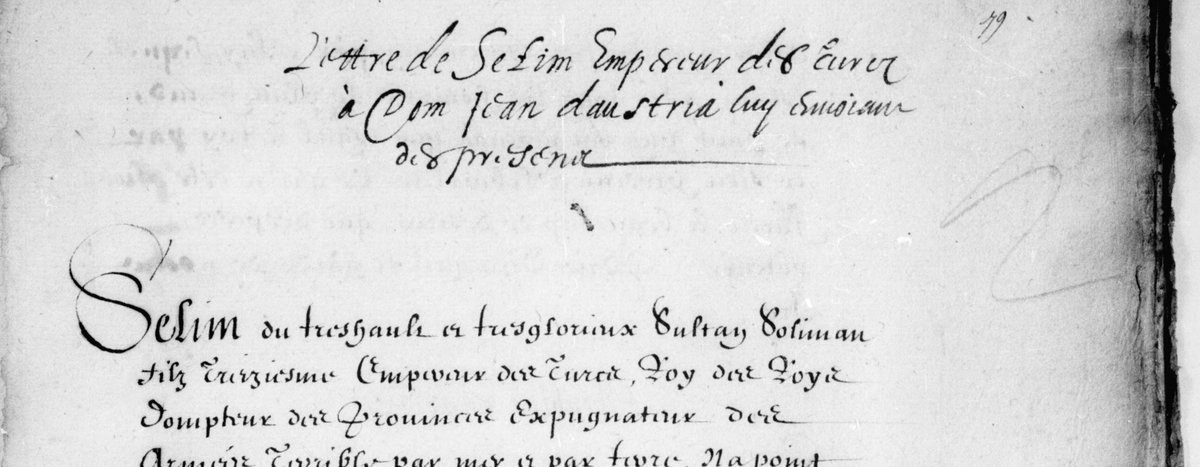 79
Lettre de Selim Empereur des Turcz
à Dom Jean daustria luy envoiant
des presens
Selim du treshault et tresglorieux Sultan Soliman
filz Treiziesme Empereur des Turcs, Roy des Roys
Dompteur des Provinces Expugnateur des
Armées Terrible par mer et par terre, Na point